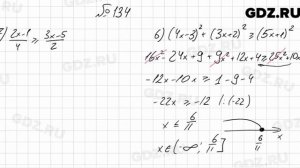 GDZ.RU
№ 134
) 2x-1/4 ≥ 3x-5/2
б) (4x-3)² + (3x+2)² ≥ (5x+1)²
16x² - 24x + 9 + 9x² + 12x + 4 ≥ 25x² + 10x
-12x - 10x ≥ 1 - 9 - 4
-22x ≥ -12 (:(-22)
x ≤ 6/11
6/11
x ∈ (-∞; 6/11]
GDZ.RU